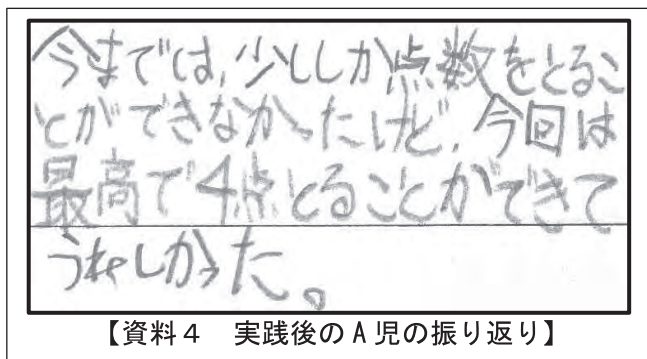 今までは,少ししか点数をとるこ
とができなかったけど,今回は
最高で4点とることができて
うれしかった。
【資料4 実践後のA児の振り返り】